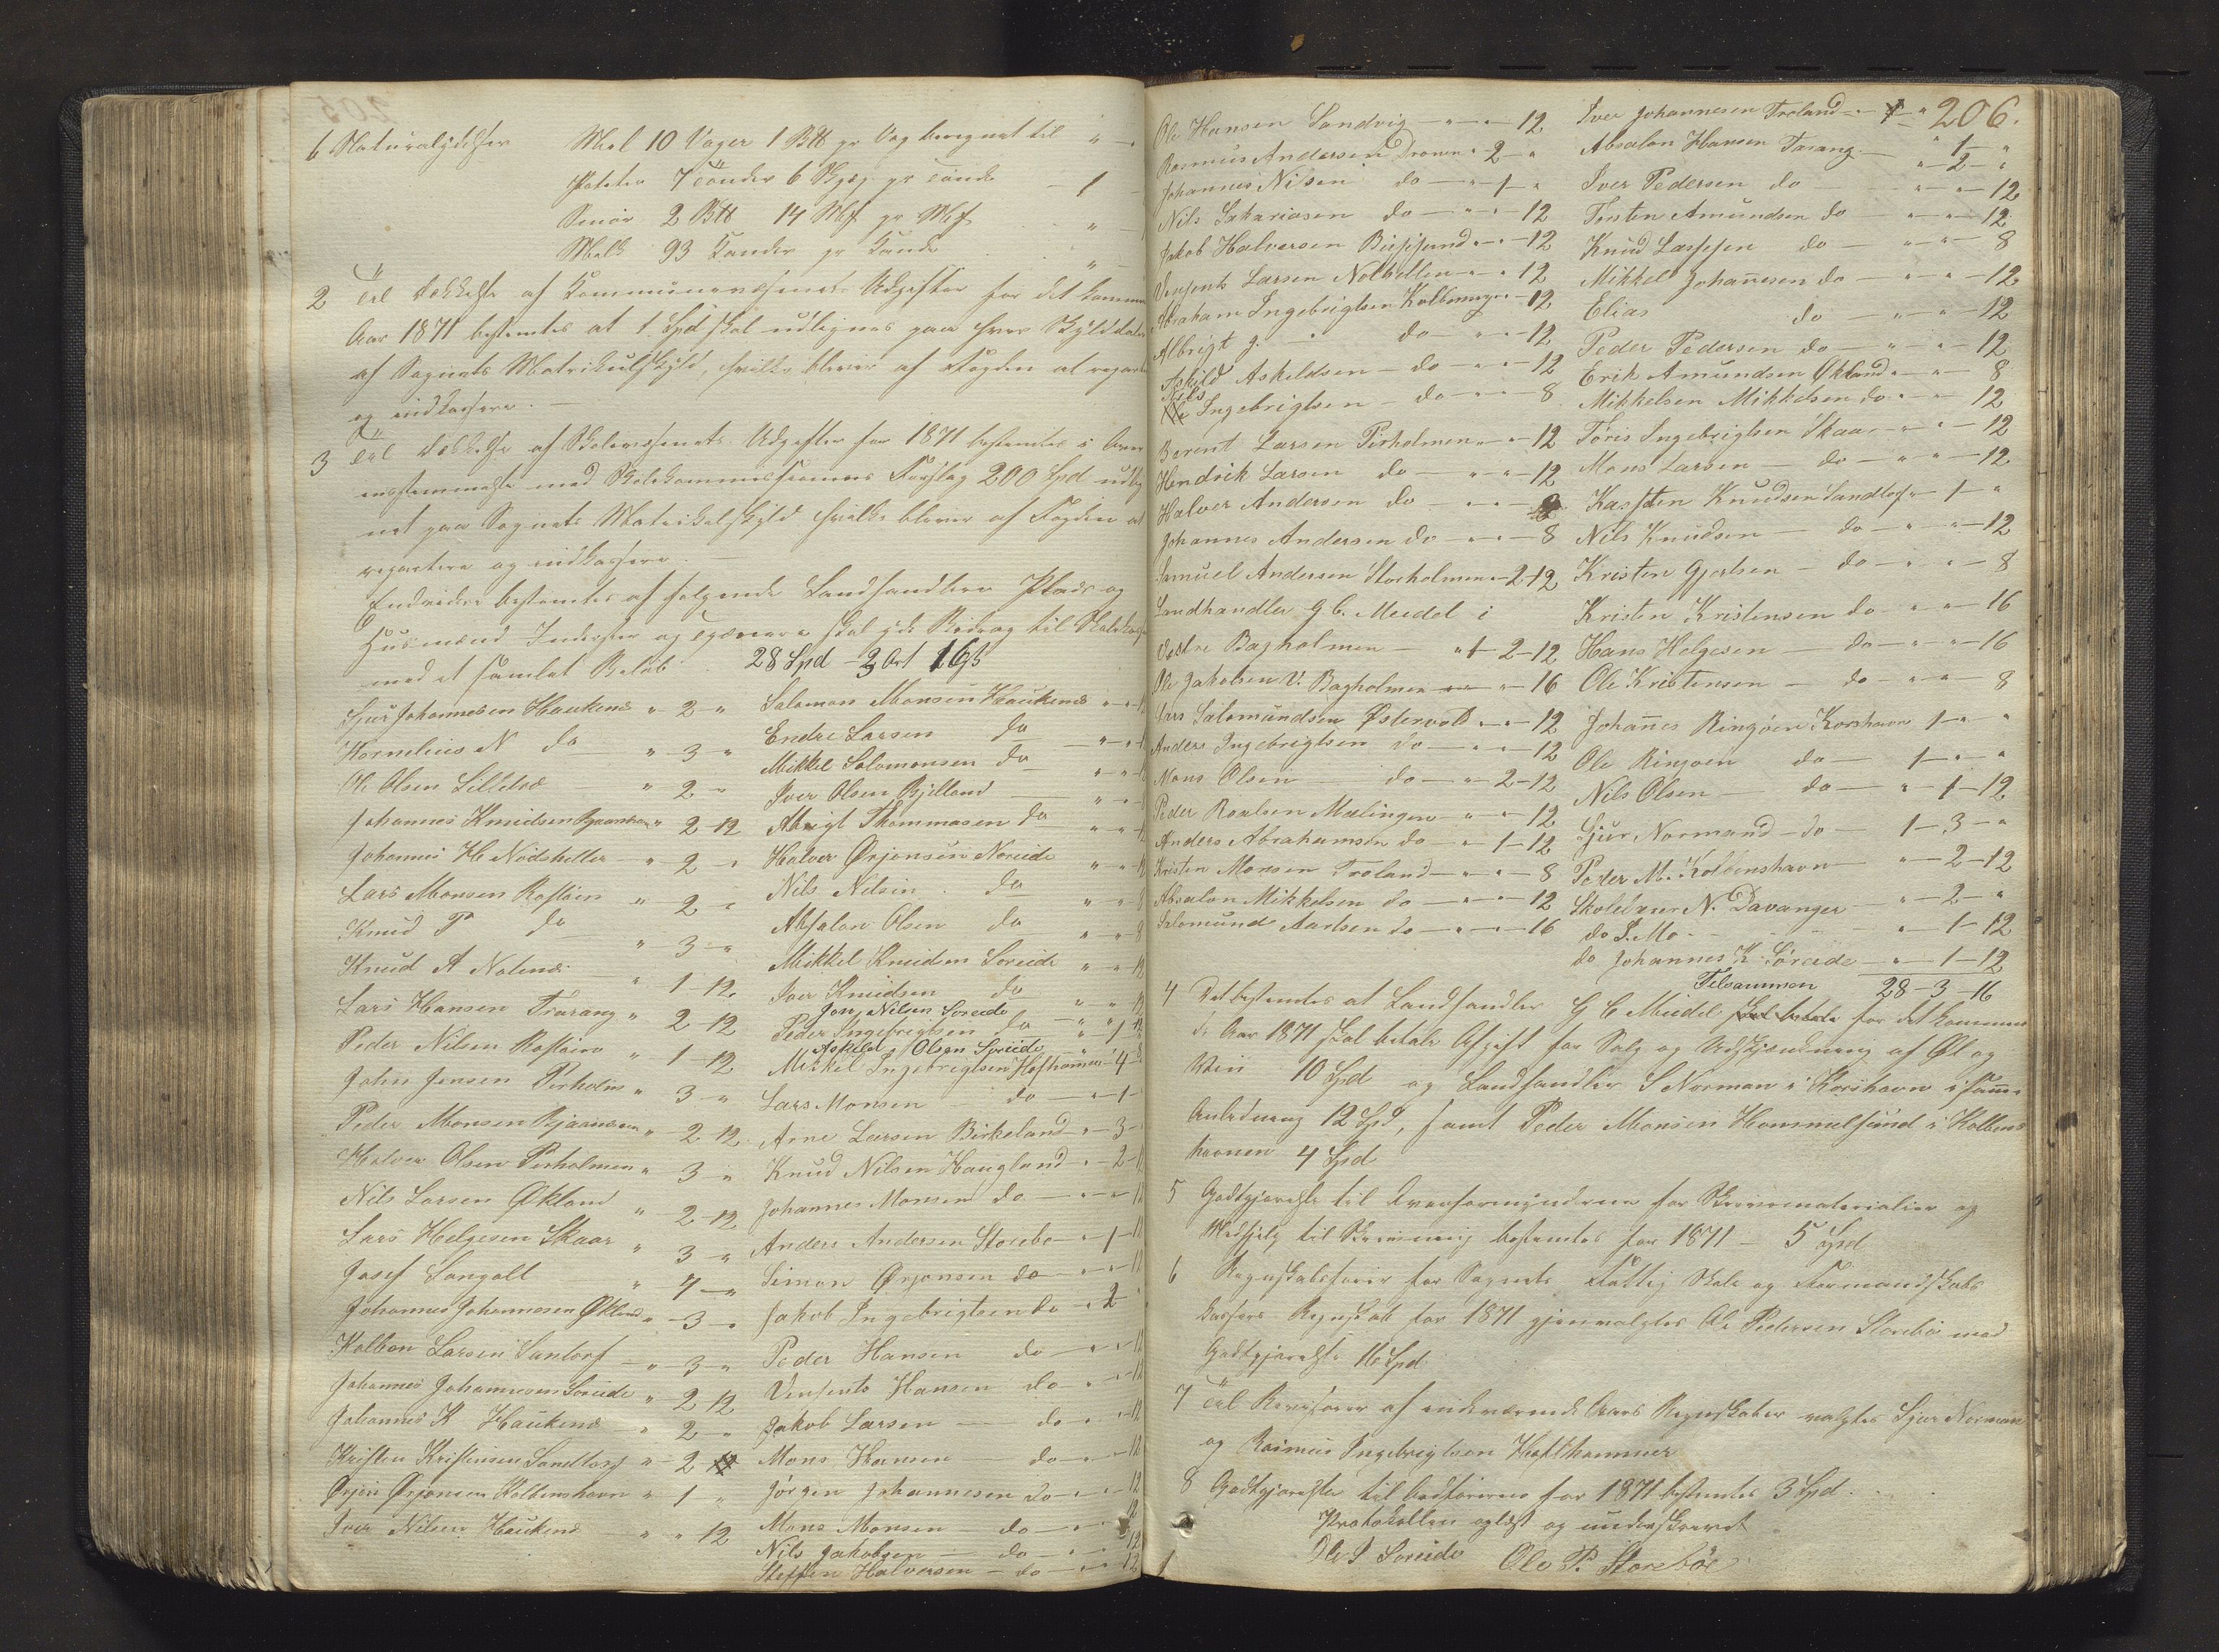 6 Naturalydelser Mel 10 Vager 1 B℔ pr Vag beregnet til " -
Poteter 7 Tönder 6 Skjæp pr Tönde - 1 -
Smör 2 B℔ 14 Mk pr Mk " -
Melk 93 Kander pr Kande " -
2 Til Dækkelse af Kommunevæsenets Udgifter for det kommende
Aar 1871 bestemtes at 1 Spd skal udlignes paa hver Skylddaler
af Sognets Matrikulskyld, hvilke bliver af Fogden at repartere
og indkassere. -
3 Til Dækkelse af Skolevæsenets Udgifter for 1871 bestemtes i Over
ensstemmelse med Skolekommissionens Forslag 200 Spd udlig
net paa Sognets Matrikelskyld hvilke bliver af Fogden at
repartere og indkassere. -
Endvidere bestemtes at følgende Landhandlere Plads og
Husmænd Inderster og skal yde Bidrag til Skolekassen
med et samlet Beløb 28 Spd - 3 Ort 16 ß
Sjur Johannesen Haukenæs " 2 - "
Kornelius N do " - 3 - "
Ole Olsen Lilletræ " 2 - "
Johannes Knudsen " 2 - 12
Johannes H Nødsheller - " - 2 - "
Lars Monsen Rostöen " - 2 - "
Knud P do " - 3 - "
Knud A Nolenæs " 1 - 12
Lars Hansen Tarang " 2 - 12
Peder Nilsen Rostöen " 1 - 12
John Jensen Perholm " 3 - "
Peder Monsen " - 2 12
Halvor Olsen Perholmen " 3 - "
Nils Larsen Økland " 2 - 12
Lars Helgesen Skaar " 3 - "
Josef Langalt " 4 - "
Johannes Johannesen Økland " - 3 - "
Kolben Larsen Santorf - " - 3 - "
Johannes Johannesen Soreide " - 2 12
Johannes K Haukenæs - " 2 - "
Kristen Kristensen Sandtorf " - 2
Ørjen Ørjensen Kolbenshavn " - 1 "
Iver Nilsen Haukenæs - " " 12
Salamon Monsen Haukenæs " - "
Endre Larsen do " - "
Mikkel Salomonsen do " - "
Iver Olsen Bjelland " - "
Abrigt Thommasen do " - "
Halvor Ørjensen Noreide " - "
Nils Nilsen do " - "
Absalon Olsen do " - " 8
Mikkel Knudsen Soreide " - " - 12
Iver Knudsen do " - " 12
Jon Nilsen Soreide
Peder Ingebrigtsen do " - " 12
Askild Olsen Soreide
Mikkel Ingebrigtsen Hofthammer " 4
Lars Monsen - do - " - 1 -
Arne Larsen Birkeland - " - 3 -
Knud Nilsen Haugland - " - 2 -
Johannes Monsen do - " - "
Anders Andersen Storebø - " - 1 -
Simon Ørjensen do - " - "
Jakob Ingebrigtsen do - " 2
Peder Hansen do - " - "
Vinsents Hansen do - " - "
Jakob Larsen - do - " - 12
Mons Hansen - do - " - 12
Jörgen Johannesen do - " - 12
Mons Monsen do - " - 12
Nils Jakobsen - do - " - 12
Steffen Halvorsen - do - " - 12
206.
Ole Hansen Sandvig - " - " - 12
Rasmus Andersen Dronen " - 2 - "
Johannes Nilsen do - " - 1 - "
Nils Sakariasen do - " - " - 12
Jakob Halvorsen - " - " - 12
Vinsents Larsen Nolhellen - " - " 12
Abraham Ingebrigtsen Kolbenes " - " - 12
Albrigt J. " do - " - " - 12
Askild Askeldsen - do - " - " - 12
Nils Ingebrigtsen - do - " - " - 8
Berent Larsen Perholmen " - " - 12
Hendrik Larsen do - " - " - 12
Halvor Andersen do - " - " - 8
Johannes Andersen do - " - " - 8
Samuel Andersen Storholmen " - 2 - 12
Landhandler G C. Meidel i
Vestre Bagholmen - " 2 - 12
Ole Jakobsen V. Bagholmen " - 16
Lars Salamundsen Østervold " - " - 12
Anders Ingebrigtsen do - " - " - 12
Mons Olsen - do - " - 2 - 12
Peder Roalsen Mælingen - " - " - 12
Anders Abrahamsen do - " 1 - 12
Kristen Monsen Troland - " - " - 8
Absalon Mikkelsen do - " - " - 12
Salomund Aarlsen do - " - " - 16
Iver Johannesen Troland - " - 1 - "
Absalon Hansen Tarang - " 1 - "
Iver Pedersen do - " - 2 - "
Torsten Amundsen do " - " - 12
Knud Lassesen do - " - " - 12
Mikkel Johannesen do - " - " - 8
Elias do - " - " - 12
Peder Pedersen do - " - " - 12
Erik Amundsen Økland " - " - 12
Mikkelsen Mikkelsen do " - " - 8
Töris Ingebrigtsen Skaar - " - " - 12
Mons Larsen - do - " - " - 12
Karsten Knudsen Sandtorf " - 1 - "
Nils Knudsen - do - " - " - 12
Kristen Gjertsen - do - " - " - 8
Kristen Kristensen do - " - " - 16
Hans Helgesen - do - " - " - 16
Ole Kristensen - do - " - " - 8
Johannes Ringöen Korshavn 1 - " - "
Ole Ringöen do - 1 - " - "
Nils Olsen - do - " - 1 - 12
Sjur Normand - do - 1 - 3 - "
Peder M. Kolbenshavn - " - 2 - 12
Skolelærer N. Davanger - " - 2 - "
do S. Mo - " - 1 - 12
do Johannes K Söreide - " - 1 - 12
Tilsammen 28 - 3 - 16
4 Det bestemtes at Landhandler G C Meidel skal betale for det kommen
de Aar 1871 skal betale Afgift for Salg og Udskjænkning af Øl og
Viin 10 Spd og Landhandler S Norman i Korshavn i samme
Anledning 12 Spd, samt Peder Monsen Hommelsund i Kolbens
havnen 4 Spd
5 Godtgjørelse til Overformynderen for Skrivematerialier og
Medhjelp til Skrivning bestemtes for 1871 - 5 Spd
6 Regnskabsfører for Sognets Fattig Skole og Formandskabs
kassers Regnskab for 1871 gjenvalgtes Ole Pedersen Storebö med
Godtgjørelse 16 Spd
7 Til Revisorer af indeværende Aars Regnskaber valgtes Sjur Norman
og Rasmus Ingebrigtsen Hofthammer
8 Godtgjørelse til for 1871 bestemtes 3 Spd.
Protokollen oplæst og underskrevet
Ole S Soreide Ole P. Storeböe